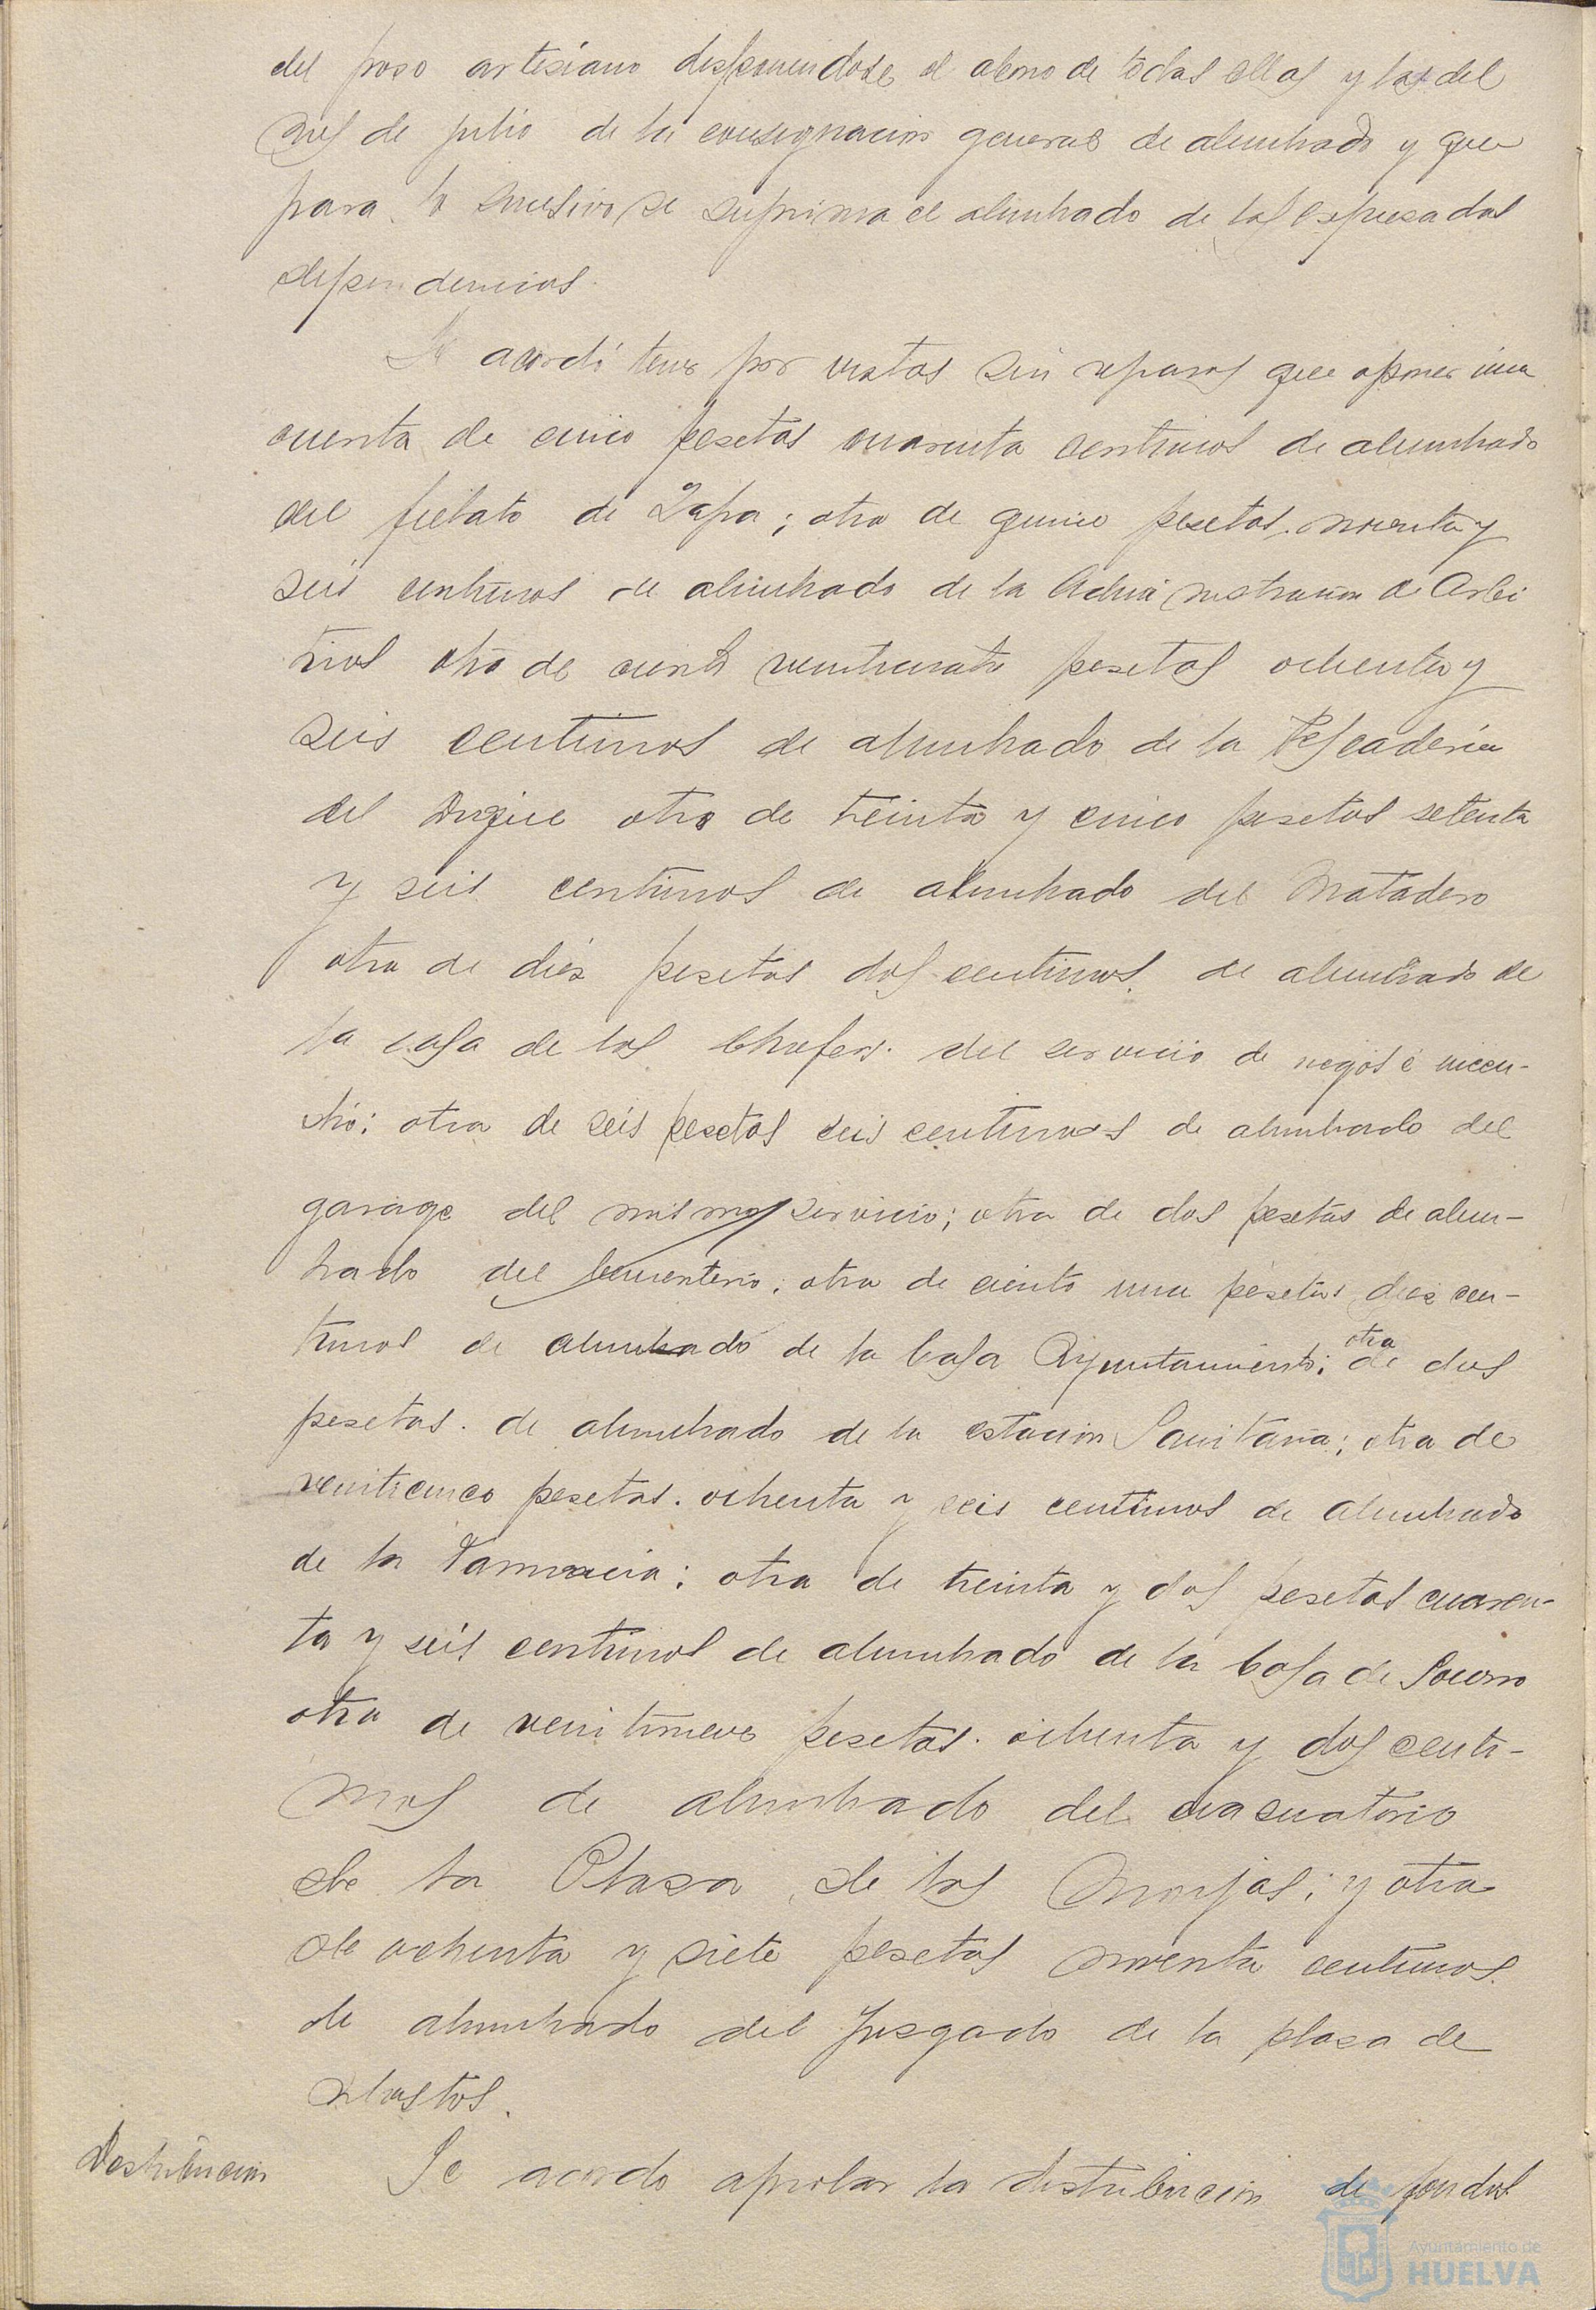 del poso artesiano disponiendose el abono de todas ellas y las del
mes de julio de la consignacion general de alumbrado y que
para lo sucesivo se suprima el alumbrado de las expresadas
dependencias.
Se acordó tener por vistas sin reparos que oponer una
cuenta de cinco pesetas cuarenta centimos de alumbrado
del fielato de Zafra; otra de quince pesetas noventa y
seis centimos de alumbrado de la Administracion de Arbi
trios otra de ciento veinticuatro pesetas ochenta y
seis centimos de alumbrado de la Pescaderia
del Dique otra de treinta y cinco pesetas setenta
y seis centimos de alumbrado del Matadero
otra de diez pesetas dos centimos de alumbrado de
la casa de los Chofers. del servicio de riegos é incen-
dio; otra de seis pesetas seis centimos de alumbrado del
garage del mismo servicio; otra de dos pesetas de alum-
brado del Cementerio; otra de ciento una pesetas diez cen-
timos de alumbrado de la Casa Ayuntamiento; otra de dos
pesetas. de alumbrado de la estacion Sanitaria; otra de
veinticinco pesetas. ochenta y seis centimos de alumbrado
de la Farmacia; otra de treinta y dos pesetas cuaren-
ta y seis centimos de alumbrado de la Casa de Socorro
otra de veintinueve pesetas. ochenta y dos centi-
mos de alumbrado del evacuatorio
de la Plaza de las Monjas; y otra
de ochenta y siete pesetas noventa centimos
de alumbrado del Juzgado de la plaza de
Abastos.
Distribucion Se acordo aprobar la distribucion de fondos
Ayuntamiento de
HUELVA